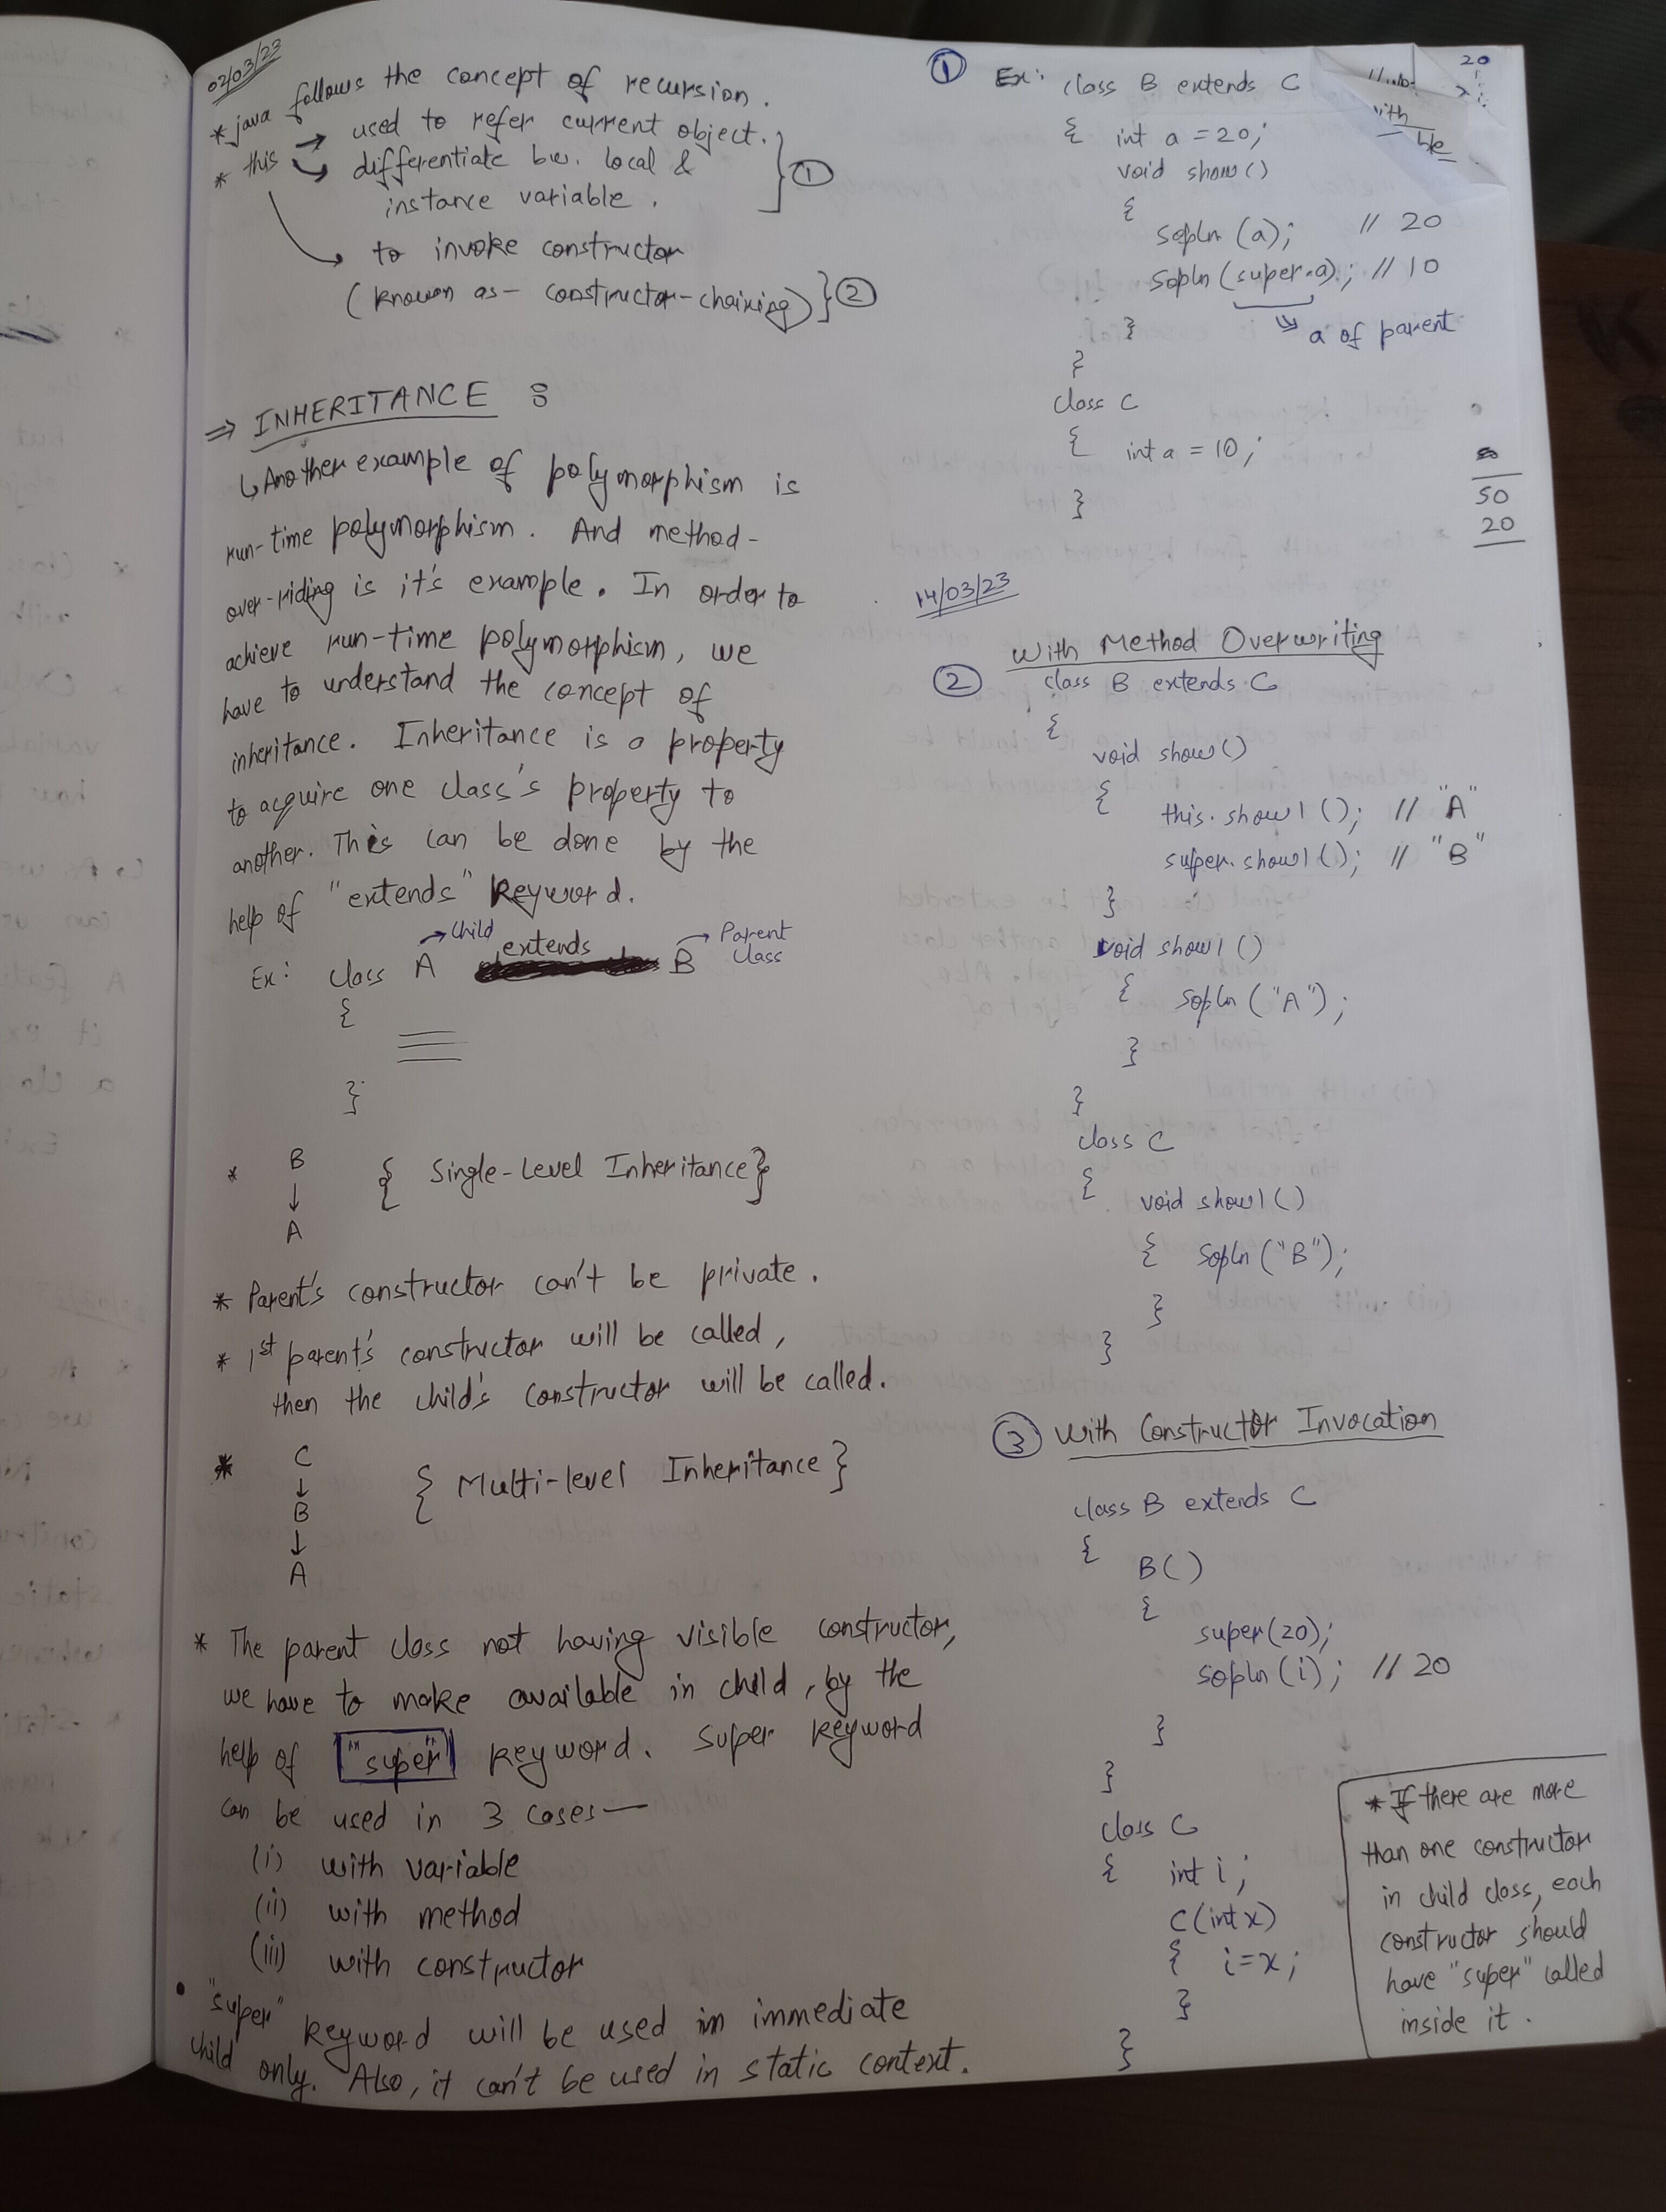 02/03/23
* java follows the concept of recursion.
* this → used to refer current object.
→ differentiate bw. local &
instance variable.
} ①
→ to invoke constructor
(known as - constructor-chaining) } ②
⇒ INHERITANCE :
↳ Another example of polymorphism is
run-time polymorphism. And method-
over-riding is it's example. In order to
achieve run-time polymorphism, we
have to understand the concept of
inheritance. Inheritance is a property
to acquire one class's property to
another. This can be done by the
help of "extends" keyword.
→ Child → Parent Class
Ex: class A extends B
{
}
* B
↓ { Single-Level Inheritance }
A
* Parent's constructor can't be private.
* 1st parent's constructor will be called,
then the child's constructor will be called.
* C
↓
B { Multi-level Inheritance }
↓
A
* The parent class not having visible constructor,
we have to make available in child, by the
help of "super" keyword. Super keyword
can be used in 3 cases—
(i) with variable
(ii) with method
(iii) with constructor
• "super" keyword will be used in immediate
child only. Also, it can't be used in static context.
① Ex: class B extends C
{ int a = 20;
void show()
{
sopln (a); // 20
sopln (super.a); // 10
⇒ a of parent
}
}
class C
{ int a = 10;
}
20
with
ble
50
20
14/03/23
② With Method Overwriting
class B extends C
{
void show()
{
this.show1(); // "A"
super.show1(); // "B"
}
void show1()
{ sopln ("A");
}
}
class C
{
void show1()
{ sopln ("B");
}
}
③ With Constructor Invocation
class B extends C
{
B()
{
super(20);
sopln (i); // 20
}
}
class C
{ int i;
C(int x)
{ i=x;
}
}
* If there are more
than one constructor
in child class, each
constructor should
have "super" called
inside it.